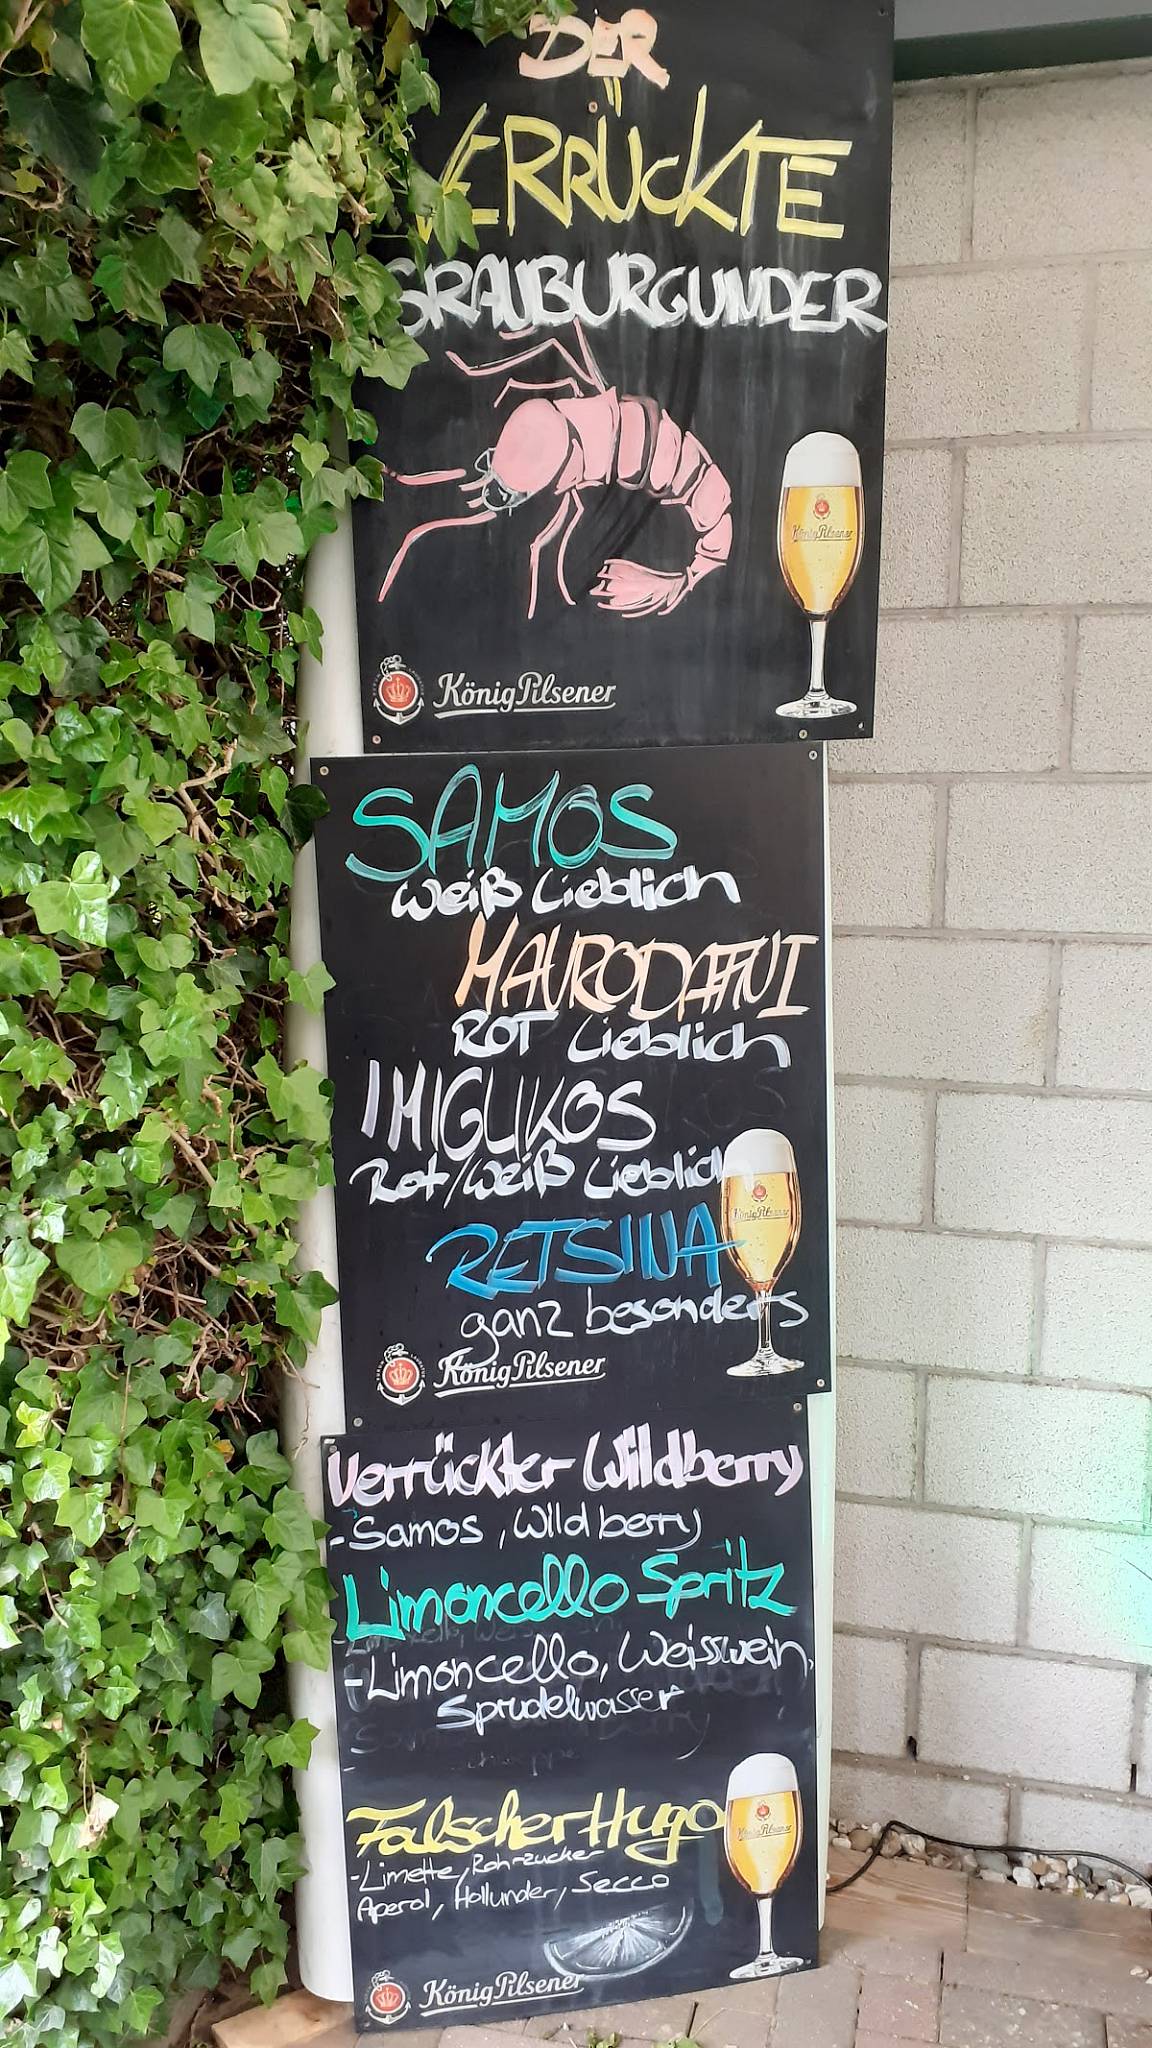 DER
VERRÜCKTE
GRAUBURGUNDER
König Pilsener
König Pilsener
SAMOS
weiß Lieblich
MAVRODAFNI
ROT Lieblich
IMIGLIKOS
Rot/weiß Lieblich
König Pilsener
RETSINA
ganz besonders
König Pilsener
Verrückter Wildberry
-Samos, Wildberry
Limoncello Spritz
-Limoncello, Weisswein,
Sprudelwasser
Falscher Hugo
König Pilsener
-Limette, Rohr-zucker
Aperol, Hollunder, Secco
König Pilsener